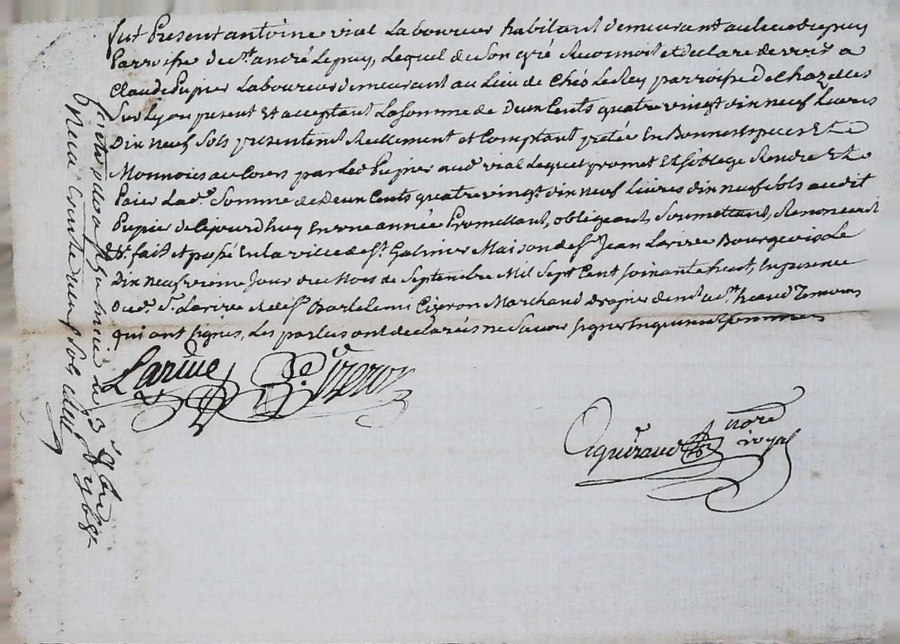 fut Present antoine vial Laboureur habitant demeurant au lieu du puy
Parroisse de st. andré Le puy, Lequel de son gré Reconnoit et declare devoir a
Claude Pupier Laboureur demeurant au Lieu de Chés Le Rey parroisse de Chazelles
Sur Lyon present Et acceptant La somme de Deux Cents quatre vingt dix neuf Livres
Dix neuf sols presentement Reellement et Comptant pretée En Bonnes especes Et de
Monnoies au Cours par Led. Pupier aud. vial Lequel promet Et s'oblege Rendre Et
Paier Lad. Somme de Deux Cents quatre vingt dix neuf Livres dix neuf sols audit
Pupier de Cejourdhuy En une année Promettant, obligeant, Soumettant, Renonceant
fait et passé En La ville de st. Galmier Maison de sr. Jean Larive Bourgeois Le
Dix neuf vieme Jour du Mois de Septembre Mil Sept Cent soixante huit, En presence
dud. Sr. Larive et de sr. Bartelemi Cizeron Marchand drapier dud. st. Temoins
qui ont signés, Les parties ont declarés ne savoir signer Enquis et sommés
Larive Cizeron
qeyraud nore royal
Controllé a st. Galmier Le 3e 8bre 1768
Reçu trente neuf sols